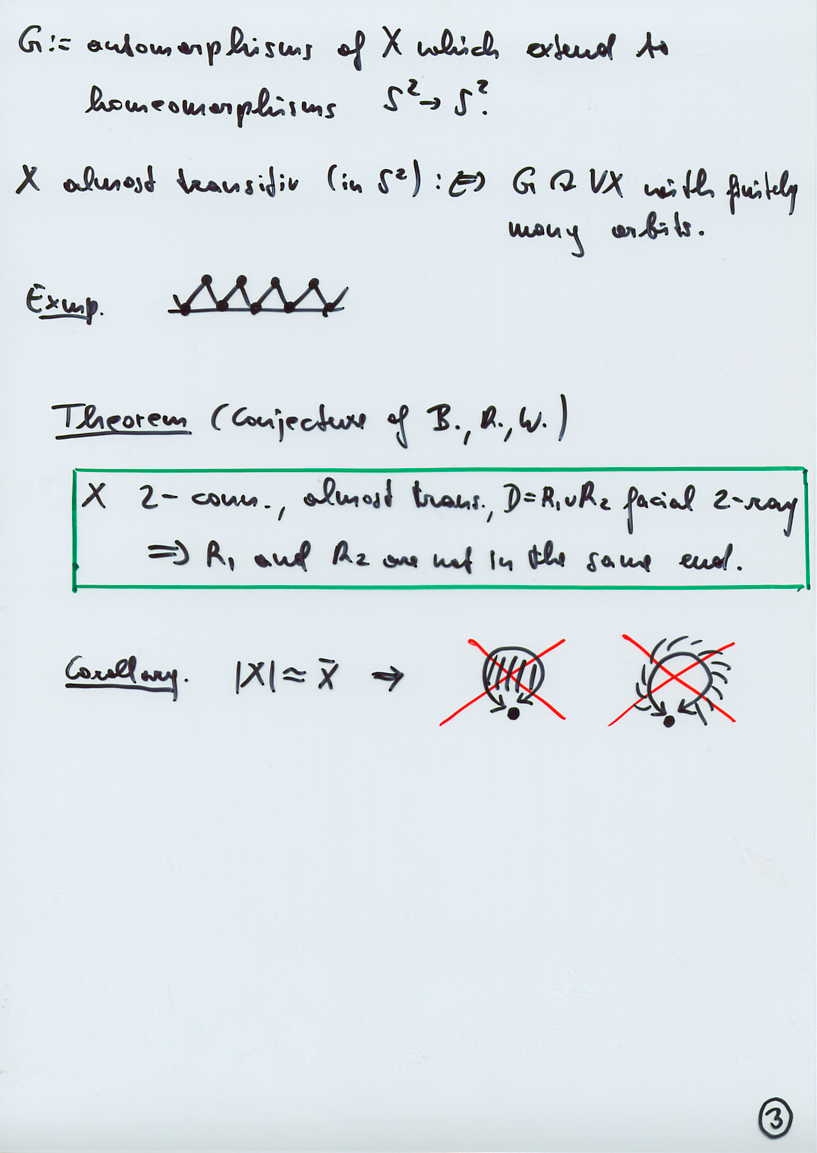 G := automorphisms of X which extend to
homeomorphisms S² → S².
X almost transitiv (in S²) :⇔ G ↷ VX with finitely
many orbits.
Exmp.
Theorem (Conjecture of B., R., W.)
X 2-conn., almost trans., D=R₁∪R₂ facial 2-ray
⇒ R₁ and R₂ are not in the same end.
Corollary. |X| ≈ X̄ ⇒
3